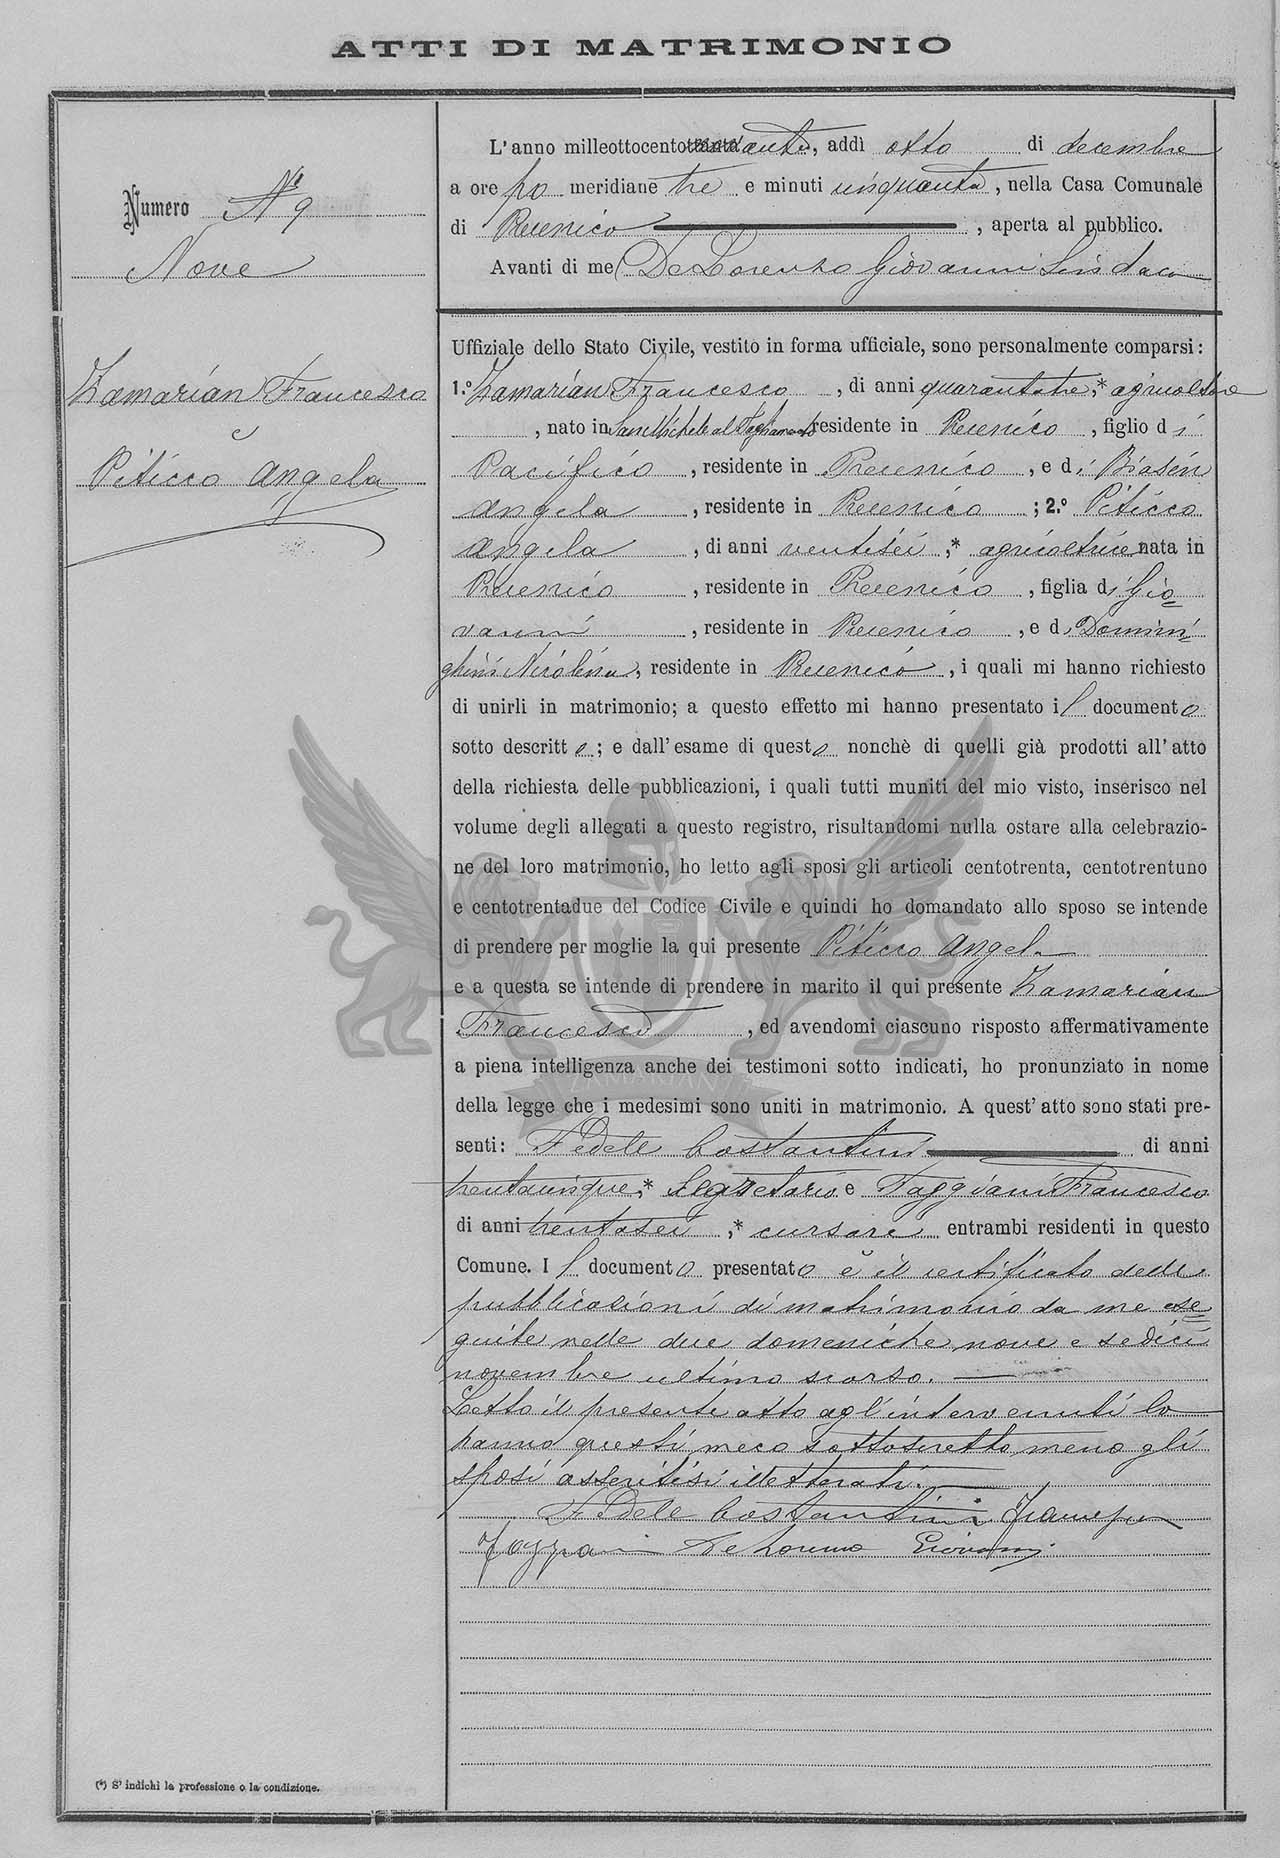 ATTI DI MATRIMONIO
Numero N° 9
Nove
Zamarian Francesco
e
Piticco Angela
L'anno milleottocento, addì otto di decembre
a ore po meridiane tre e minuti cinquanta, nella Casa Comunale
di, aperta al pubblico.
Avanti di me De Lorenzo Giovanni Sindaco
Uffiziale dello Stato Civile, vestito in forma ufficiale, sono personalmente comparsi:
1.° Zamarian Francesco, di anni quarantatre,* agricoltore
, nato in San Michele al Tagliamento residente in, figlio di
Pacifico, residente in, e di Biasin
Angela, residente in; 2.° Piticco
Angela, di anni ventisei,* agricoltrice nata in
, residente in, figlia di Gio=
vanni, residente in, e di Domini=
ghini Nicolina, residente in, i quali mi hanno richiesto
di unirli in matrimonio; a questo effetto mi hanno presentato il documento
sotto descritto; e dall'esame di questo nonchè di quelli già prodotti all'atto
della richiesta delle pubblicazioni, i quali tutti muniti del mio visto, inserisco nel
volume degli allegati a questo registro, risultandomi nulla ostare alla celebrazio-
ne del loro matrimonio, ho letto agli sposi gli articoli centotrenta, centotrentuno
e centotrentadue del Codice Civile e quindi ho domandato allo sposo se intende
di prendere per moglie la qui presente Piticco Angela
e a questa se intende di prendere in marito il qui presente Zamarian
Francesco, ed avendomi ciascuno risposto affermativamente
a piena intelligenza anche dei testimoni sotto indicati, ho pronunziato in nome
della legge che i medesimi sono uniti in matrimonio. A quest'atto sono stati pre-
senti: Fedele Costantini di anni
trentacinque,* Segretario e Faggiani Francesco
di anni trentasei,* cursore entrambi residenti in questo
Comune. Il documento presentato è il certificato delle
pubblicazioni di matrimonio da me ese=
guite nelle due domeniche nove e sedici
novembre ultimo scorso.
Letto il presente atto agl'intervenuti lo
hanno questi meco sottoscritto, meno gli
sposi asseritisi illetterati.
Fedele Costantini Francesco
Faggiani De Lorenzo Giovanni
(*) S'indichi la professione o la condizione.
ZAMARIAN